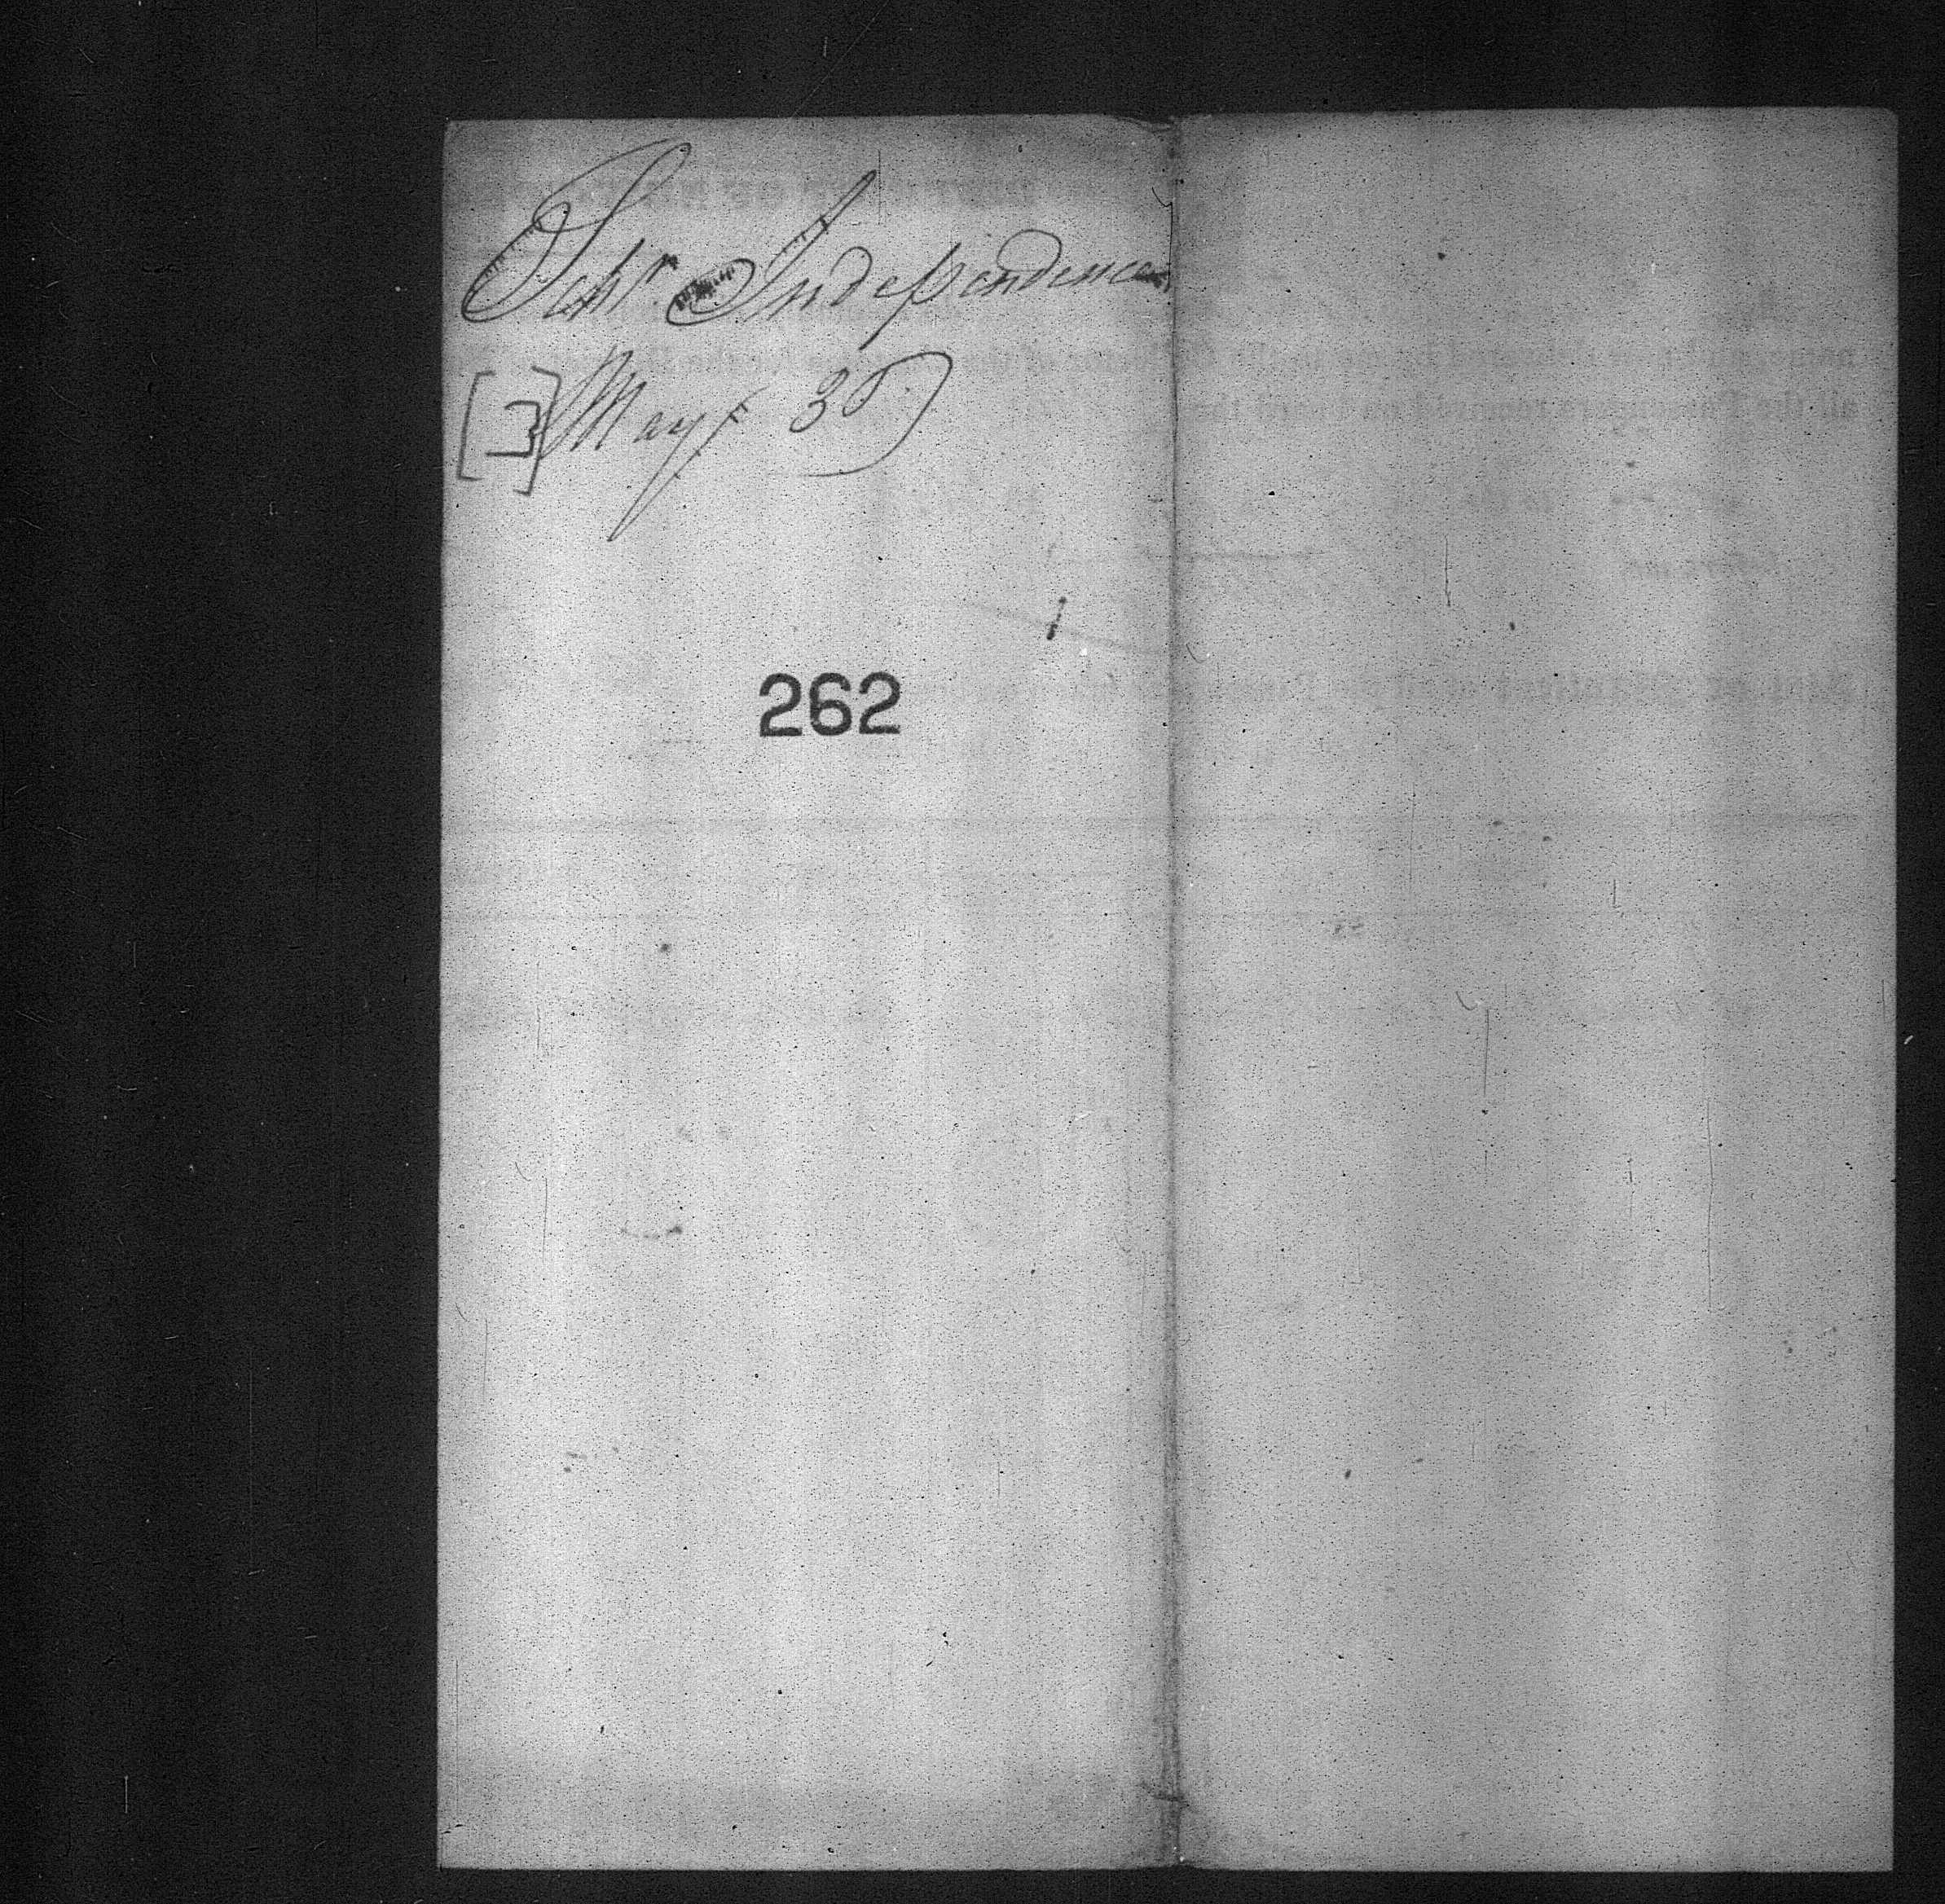 Schr. Independence
[3] May 30
262